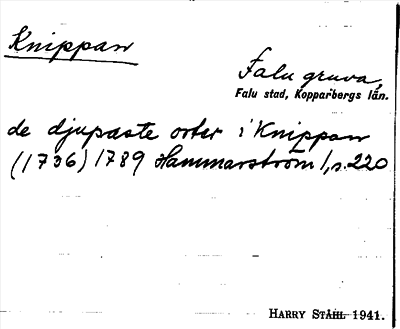 Knippan
Falu gruva,
Falu stad, Kopparbergs län.
de djupaste orter i Knippan
(1736) 1789 Hammarström 1, s. 220
HARRY STÅHL 1941.